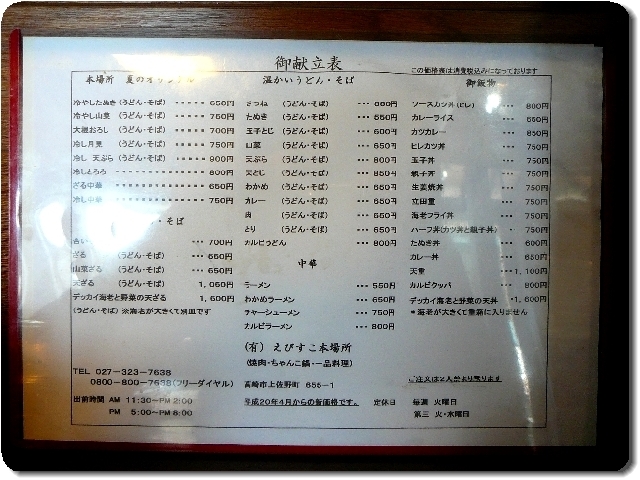 御献立表
この価格表は消費税込みになっております
本場所 夏のオリジナル
冷やしたぬき (うどん・そば) 650円
冷やし山菜 (うどん・そば) 750円
大根おろし (うどん・そば) 700円
冷し月見 (うどん・そば) 700円
冷し 天ぷら (うどん・そば) 900円
冷しとろろ 800円
ざる中華 650円
冷し中華 750円
・そば
合い 700円
ざる (うどん・そば) 550円
山菜ざる (うどん・そば) 650円
天ざる (うどん・そば) 1,050円
デッカイ海老と野菜の天ざる 1,600円
(うどん・そば) ※海老が大きくて別皿です
温かいうどん・そば
きつね (うどん・そば) 600円
たぬき (うどん・そば) 550円
玉子とじ (うどん・そば) 600円
山菜 (うどん・そば) 650円
天ぷら (うどん・そば) 800円
天とじ (うどん・そば) 850円
わかめ (うどん・そば) 550円
カレー (うどん・そば) 650円
肉 (うどん・そば) 650円
とり (うどん・そば) 650円
カルビうどん 800円
中華
ラーメン 550円
わかめラーメン 650円
チャーシューメン 750円
カルビラーメン 800円
御飯物
ソースカツ丼 (ヒレ) 800円
カレーライス 650円
カツカレー 850円
ヒレカツ丼 750円
玉子丼 650円
親子丼 750円
生姜焼丼 750円
立田重 750円
海老フライ丼 750円
ハーフ丼(カツ丼と親子丼) 750円
たぬき丼 600円
カレー丼 650円
天重 1,100円
カルビクッパ 800円
デッカイ海老と野菜の天丼 1,600円
*海老が大きくて重箱に入りません
(有) えびすこ本場所
(焼肉・ちゃんこ鍋・一品料理)
TEL 027-323-7638
0800-800-7638(フリーダイヤル)
高崎市上佐野町 655-1
ご注文は2人前より承ります
出前時間 AM 11:30~PM 2:00
PM 5:00~PM 8:00
平成20年4月からの新価格です。
定休日 毎週 火曜日
第三 火・水曜日